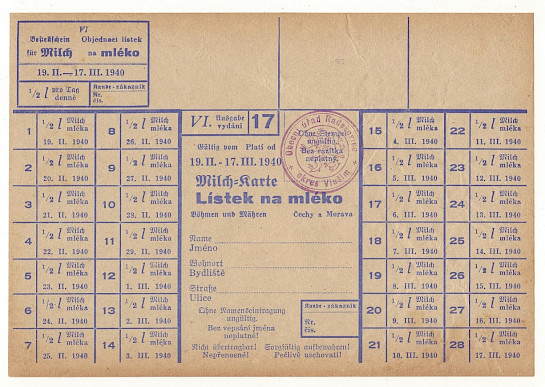 VI
Bestellschein Objednací lístek
für Milch na mléko
19. II.—17. III. 1940
1/2 l pro Tag denně
Kunde - zákazník
Nr.
čís.
VI. Ausgabe vydání 17
Gültig vom Platí od
19. II. - 17. III. 1940
Milch-Karte
Lístek na mléko
Böhmen und Mähren Čechy a Morava
Name
Jméno
Wohnort
Bydliště
Straße
Ulice
Ohne Namenseintragung
ungültig.
Bez vepsání jména
neplatné!
Kunde - zákazník
Nr.
čís.
Nicht übertragbar! Sorgfältig aufbewahren!
Nepřenosné! Pečlivě uschovati!
Ohne Stempel
ungültig
Bez razítka
neplatné
Obecní úřad
okres Vlašim
1 1/2 l Milch mléka 19. II. 1940
2 1/2 l Milch mléka 20. II. 1940
3 1/2 l Milch mléka 21. II. 1940
4 1/2 l Milch mléka 22. II. 1940
5 1/2 l Milch mléka 23. II. 1940
6 1/2 l Milch mléka 24. II. 1940
7 1/2 l Milch mléka 25. II. 1940
8 1/2 l Milch mléka 26. II. 1940
9 1/2 l Milch mléka 27. II. 1940
10 1/2 l Milch mléka 28. II. 1940
11 1/2 l Milch mléka 29. II. 1940
12 1/2 l Milch mléka 1. III. 1940
13 1/2 l Milch mléka 2. III. 1940
14 1/2 l Milch mléka 3. III. 1940
15 1/2 l Milch mléka 4. III. 1940
16 1/2 l Milch mléka 5. III. 1940
17 1/2 l Milch mléka 6. III. 1940
18 1/2 l Milch mléka 7. III. 1940
19 1/2 l Milch mléka 8. III. 1940
20 1/2 l Milch mléka 9. III. 1940
21 1/2 l Milch mléka 10. III. 1940
22 1/2 l Milch mléka 11. III. 1940
23 1/2 l Milch mléka 12. III. 1940
24 1/2 l Milch mléka 13. III. 1940
25 1/2 l Milch mléka 14. III. 1940
26 1/2 l Milch mléka 15. III. 1940
27 1/2 l Milch mléka 16. III. 1940
28 1/2 l Milch mléka 17. III. 1940